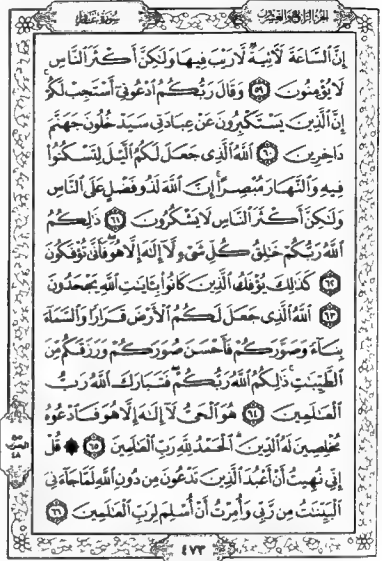 الجزء الرابع والعشرون
سورة غافر
إِنَّ ٱلسَّاعَةَ لَـَٔاتِيَةٌ لَّا رَيْبَ فِيهَا وَلَـٰكِنَّ أَكْثَرَ ٱلنَّاسِ
لَا يُؤْمِنُونَ ٥٩ وَقَالَ رَبُّكُمُ ٱدْعُونِىٓ أَسْتَجِبْ لَكُمْ
إِنَّ ٱلَّذِينَ يَسْتَكْبِرُونَ عَنْ عِبَادَتِى سَيَدْخُلُونَ جَهَنَّمَ
دَاخِرِينَ ٦٠ ٱللَّهُ ٱلَّذِى جَعَلَ لَكُمُ ٱلَّيْلَ لِتَسْكُنُوا۟
فِيهِ وَٱلنَّهَارَ مُبْصِرًا إِنَّ ٱللَّهَ لَذُو فَضْلٍ عَلَى ٱلنَّاسِ
وَلَـٰكِنَّ أَكْثَرَ ٱلنَّاسِ لَا يَشْكُرُونَ ٦١ ذَٰلِكُمُ
ٱللَّهُ رَبُّكُمْ خَـٰلِقُ كُلِّ شَىْءٍ لَّآ إِلَـٰهَ إِلَّا هُوَ فَأَنَّىٰ تُؤْفَكُونَ
٦٢ كَذَٰلِكَ يُؤْفَكُ ٱلَّذِينَ كَانُوا۟ بِـَٔايَـٰتِ ٱللَّهِ يَجْحَدُونَ
٦٣ ٱللَّهُ ٱلَّذِى جَعَلَ لَكُمُ ٱلْأَرْضَ قَرَارًا وَٱلسَّمَآءَ
بِنَآءً وَصَوَّرَكُمْ فَأَحْسَنَ صُوَرَكُمْ وَرَزَقَكُم مِّنَ
ٱلطَّيِّبَـٰتِ ذَٰلِكُمُ ٱللَّهُ رَبُّكُمْ فَتَبَارَكَ ٱللَّهُ رَبُّ
ٱلْعَـٰلَمِينَ ٦٤ هُوَ ٱلْحَىُّ لَآ إِلَـٰهَ إِلَّا هُوَ فَٱدْعُوهُ
مُخْلِصِينَ لَهُ ٱلدِّينَ ٱلْحَمْدُ لِلَّهِ رَبِّ ٱلْعَـٰلَمِينَ ٦٥ قُلْ
إِنِّى نُهِيتُ أَنْ أَعْبُدَ ٱلَّذِينَ تَدْعُونَ مِن دُونِ ٱللَّهِ لَمَّا جَآءَنِىَ
ٱلْبَيِّنَـٰتُ مِن رَّبِّى وَأُمِرْتُ أَنْ أُسْلِمَ لِرَبِّ ٱلْعَـٰلَمِينَ ٦٦
الحزب
٤٨
٤٧٣